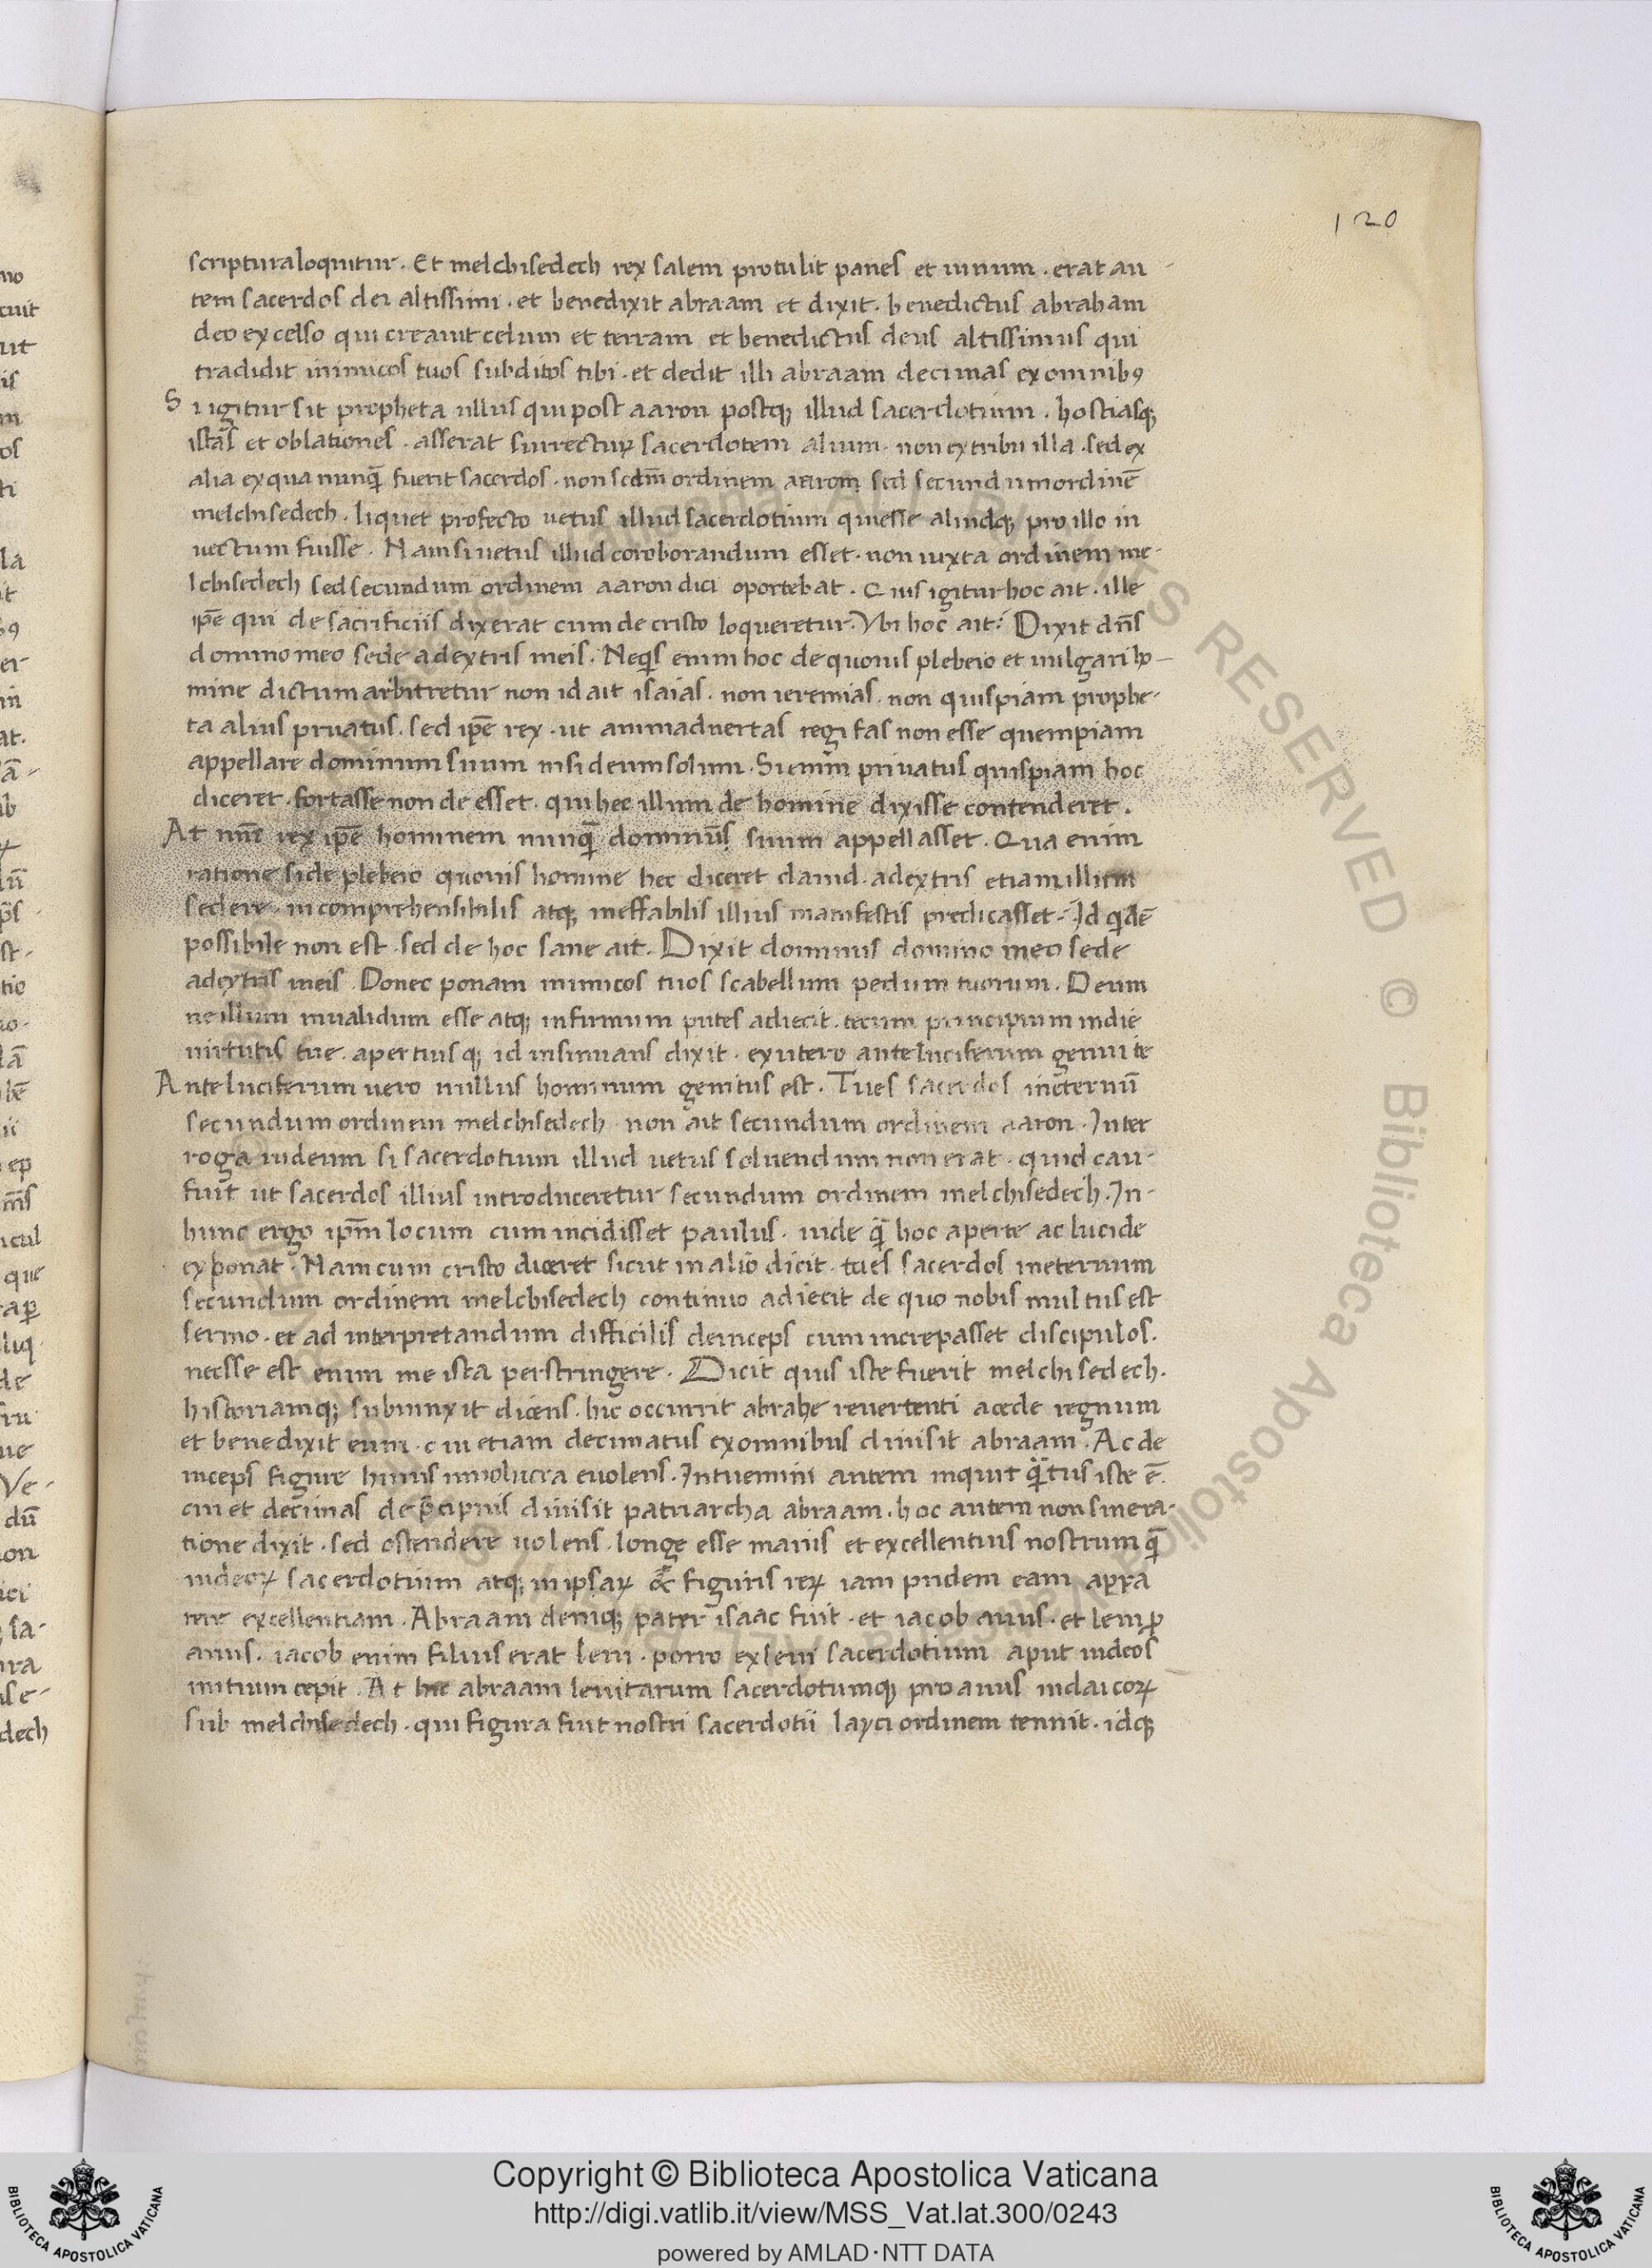 120
scriptura loquitur. Et melchisedech rex salem protulit panes et uinum. erat au-
tem sacerdos dei altissimi. et benedixit abraam et dixit. benedictus abraham
deo excelso qui creauit celum et terram et benedictus deus altissimus qui
tradidit inimicos tuos subditos tibi. et dedit illi abraam decimas ex omnibꝰ
Si igitur sit propheta ullus qui post aaron postqꝫ illud sacerdotium. hostiasqꝫ
istas et oblationes. asserat surrectuꝝ sacerdotem alium. non ex tribu illa. sed ex
alia ex qua nunq̄ fuerit sacerdos. non scdm̄ ordinem aaron sed secundum ordinē
melchisedech. liquet profecto uetus illud sacerdotium quiesse aliudqꝫ pro illo in
uectum fuisse. Nam si uetus illud coroborandum esset. non iuxta ordinem me-
lchisedech sed secundum ordinem aaron dici oportebat. Cuis igitur hoc ait. ille
ip̄e qui de sacrificiis dixerat cum de cristo loqueretur. Vbi hoc ait? Dixit dn̄s
domino meo sede adextris meis. Neq̇s enim hoc de quouis plebeio et uulgari ho-
mine dictum arbitretur non id ait isaias. non ieremias. non quispiam prophe-
ta alius priuatus. sed ip̄e rex. ut animaduertas regi fas non esse quempiam
appellare dominum suum nisi deum solum. Si enim priuatus quispiam hoc
diceret. fortasse non de esset. qui hec illum de homine dixisse contenderet.
At nūc rex ip̄e hominem nunq̄ dominūs suum appellasset. Qua enim
ratione si de plebeio quouis homine hec diceret dauid. adextris etiam illum
sedere. incomprehensibilis atqꝫ ineffabilis illius manifestis predicasset. Id qͥdē
possibile non est. sed de hoc sane ait. Dixit dominus domino meo sede
adextris meis. Donec ponam inimicos tuos scabellum pedum tuorum. Deum
ne illum inualidum esse atqꝫ infirmum putes adiecit. tecum principium in die
uirtutis tue. apertiusqꝫ id insinuans dixit. ex utero ante luciferum genui te
Ante luciferum uero nullus hominum genitus est. Tu es sacerdos in eternū
secundum ordinem melchisedech non ait secundum ordinem aaron. Inter
roga iudeum si sacerdotium illud uetus soluendum non erat. quid cau-
fuit ut sacerdos illius introduceretur secundum ordinem melchisedech. In-
hunc ergo ip̄m locum cum incidisset paulus. uide q̄ hoc aperte ac lucide
exponat. Nam cum cristo diceret sicut in alio dicit. tu es sacerdos in eternum
secundum ordinem melchisedech continuo adiecit de quo nobis multus est
sermo. et ad interpretandum difficilis deinceps cum increpasset discipulos.
necsse est enim me ista perstringere. Dicit quis iste fuerit melchisedech.
historiamqꝫ subiunxit dicens. hic occurrit abrahe reuertenti acede regnum
et benedixit eum. cui etiam decimatus ex omnibus diuisit abraam. Ac de
inceps figure huius inuolucra euolens. Intuemini autem inquit q̄tus iste ē.
cui et decimas de p̄cipuis diuisit patriarcha abraam. hoc autem non sine ra-
tione dixit. sed ostendere uolens. longe esse maius et excellentius nostrum q̄
iudeoꝝ sacerdotium atqꝫ in ipsaꝝ figuris reꝝ iam pridem eam appa
rere excellentiam. Abraam deniqꝫ pater isaac fuit. et iacob auus. et leui ꝓ
auus. iacob enim filius erat leui. porro ex leui sacerdotium aput iudeos
initium cepit. At hic abraam leuitarum sacerdotumqꝫ proauus iudaicoꝝ
sub melchisedech. qui figura fuit nostri sacerdotii layci ordinem tenuit. idqꝫ
Copyright © Biblioteca Apostolica Vaticana
http://digi.vatlib.it/view/MSS_Vat.lat.300/0243
powered by AMLAD·NTT DATA
BIBLIOTECA APOSTOLICA VATICANA
BIBLIOTECA APOSTOLICA VATICANA